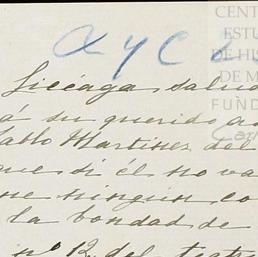 CENT
ESTU
DE HIS
DE M
FUND
Car
a y c
Licéaga salud
á su querido a
Pablo Martinez del
que si él no va
ne ningun co
la bondad de
nº 12 del teatr